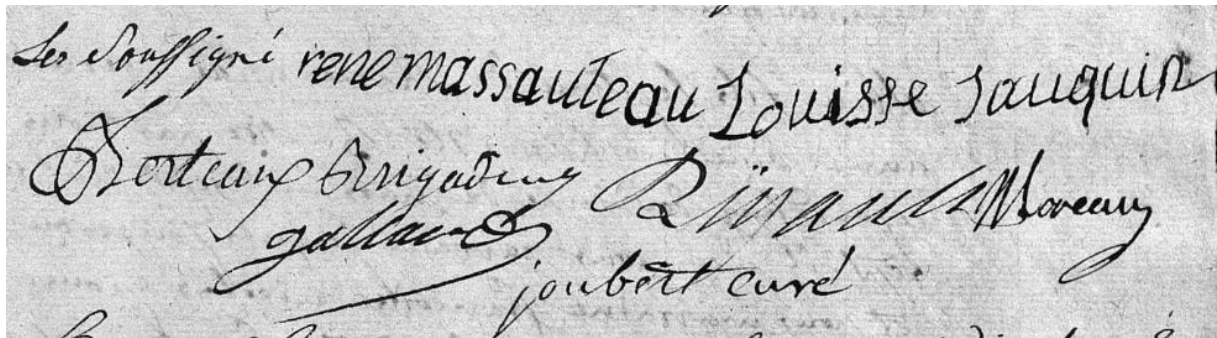 les Soussigné rene massauteau Louisse Jauquin
Berteau Brigadier Rinault Moreau
galland
joubert curé